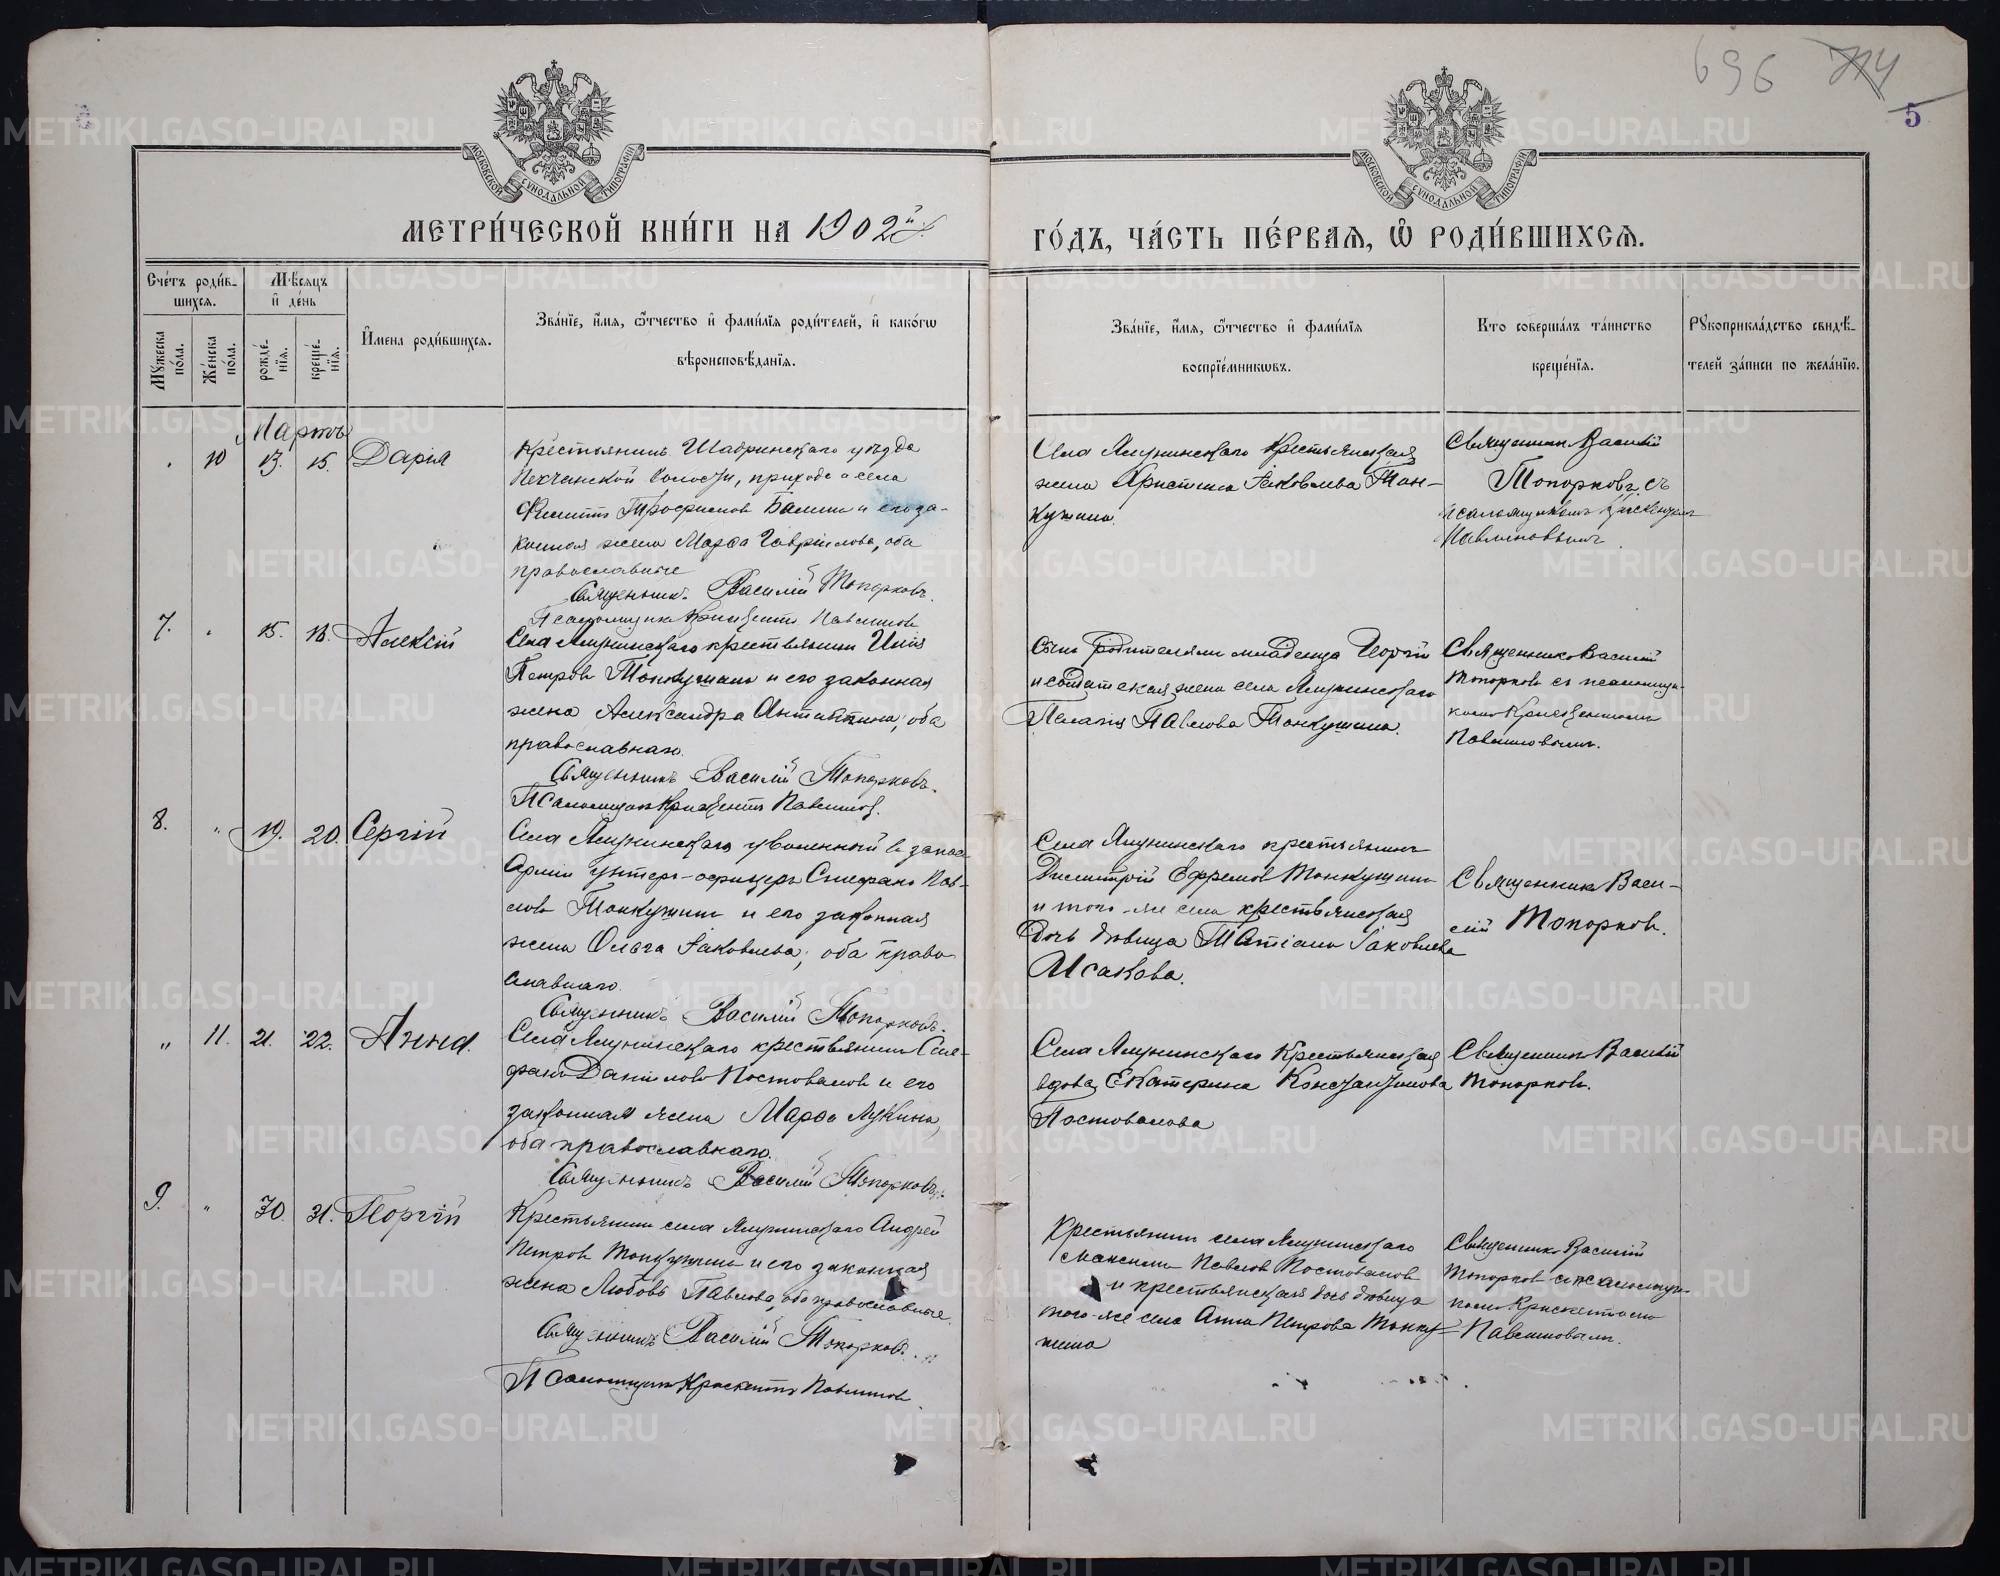 696 714
5
МОСКОВСКОЙ СУНОДАЛЬНОЙ ТИПОГРАФІИ
МОСКОВСКОЙ СУНОДАЛЬНОЙ ТИПОГРАФІИ
МЕТРИ́ЧЕСКОЙ КНИ́ГИ НА 1902й
ГО́ДЪ, ЧА́СТЬ ПЕ́РВАѦ, Ѽ РОДИ́ВШИХСѦ.
Сче́тъ роди́в-
шихсѧ.
Мѣ́сѧцъ
и҆ де́нь
Мꙋжеска по́ла.
Же́нска по́ла.
рожде́-нїѧ.
креще́-нїѧ.
И҆мена роди́вшихсѧ.
Зва́нїе, и҆́мѧ, ѻ҆́тчество и҆ фами́лїѧ роди́телей, и҆ како́гѡ
вѣроисповѣ́данїѧ.
Зва́нїе, и҆́мѧ, ѻ҆́тчество и҆ фами́лїѧ
воспрїе́мникѡвъ.
Кто̀ соверша́лъ та́инство
креще́нїѧ.
Рꙋкоприкла́дство свидѣ́-
телей за́писи по жела́нїю.
Мартъ
10 13. 15. Дарія
Крестьянинъ Шадринскаго уѣзда
волости, прихода села
Трофимов и его за-
конная жена Марфа Гаврілова, оба
православные
Священникъ Василій Топорковъ.
Псаломщикъ Крискентъ Павлинов
Села Ячменскаго Крестьянская
жена Христина Іаковлева Тон-
кушина.
Священник Василій
Топорковъ съ
псаломщикомъ Крискентом
Павлиновымъ
7. 15. 18. Алексій
Села крестьянин Илія
Петров Тонкушин и его законная
жена Александра Антипина; оба
православнаго.
Священникъ Василій Топорковъ.
Псаломщикъ Крискентъ Павлинов.
Сынъ родителями младенца Георгій
и солдатская жена села
Пелагія Павлова Тонкушина.
Священникъ Василій
Топорковъ съ псаломщи-
комъ Крискентомъ
Павлиновымъ.
8. " 19. 20. Сергій
Села уволенный в запас
Арміи унтеръ-офицеръ Стефанъ Пав-
ловъ Тонкушин и его законная
жена Ольга Іаковлева; оба право-
славнаго.
Священникъ Василій Топорковъ.
Села крестьянинъ
Димитрій Ефремов Тонкушин
и того-же села крестьянская
дочь дѣвица Татіана Іаковлева
Исакова.
Священникъ Васи-
лій Топорков.
" 11. 21. 22. Анна.
Села крестьянин Сте-
фанъ Даніиловъ Постовалов и его
законная жена Марфа Лукина,
оба православнаго.
Священникъ Василій Топорковъ.
Села Крестьянская
вдова Екатерина Константинова
Постовалова
Священник Василій
Топорков.
9. " 30. 31. Георгій
Крестьянин села Андрей
Петров Тонкушин и его законная
жена Любовь Павлова, оба православные.
Священникъ Василій Топорков.
Псаломщикъ Крискентъ Павлинов
Крестьянин села
Максимъ Павлов Постовалов
и крестьянская дочь дѣвица
того-же села Анна Петрова Тонку-
шина
Священник Василій
Топорков с псаломщи-
комъ Крискентомъ
Павлиновым.